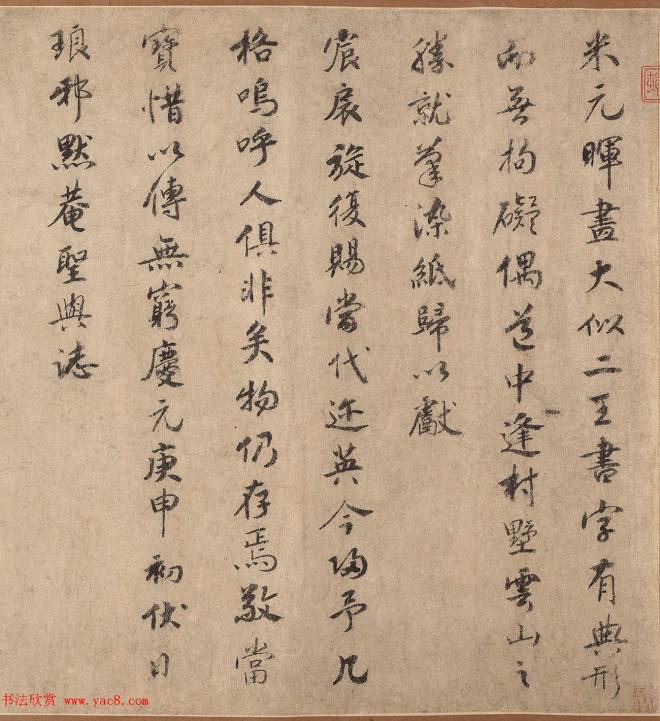 米元暉畫大似二王書字有典形
而無拘礙偶道中逢村墅雲山之
勝就筆染紙歸以獻
宸扆旋復賜當代近英今歸予几
格嗚呼人俱非矣物仍存焉敬當
寶惜以傳無窮慶元庚申初伏日
琅邪默菴聖與誌
书法欣赏 www.yac8.com